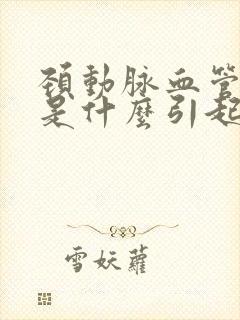 頚動脉血管
是什麼引起
雪妖蘿